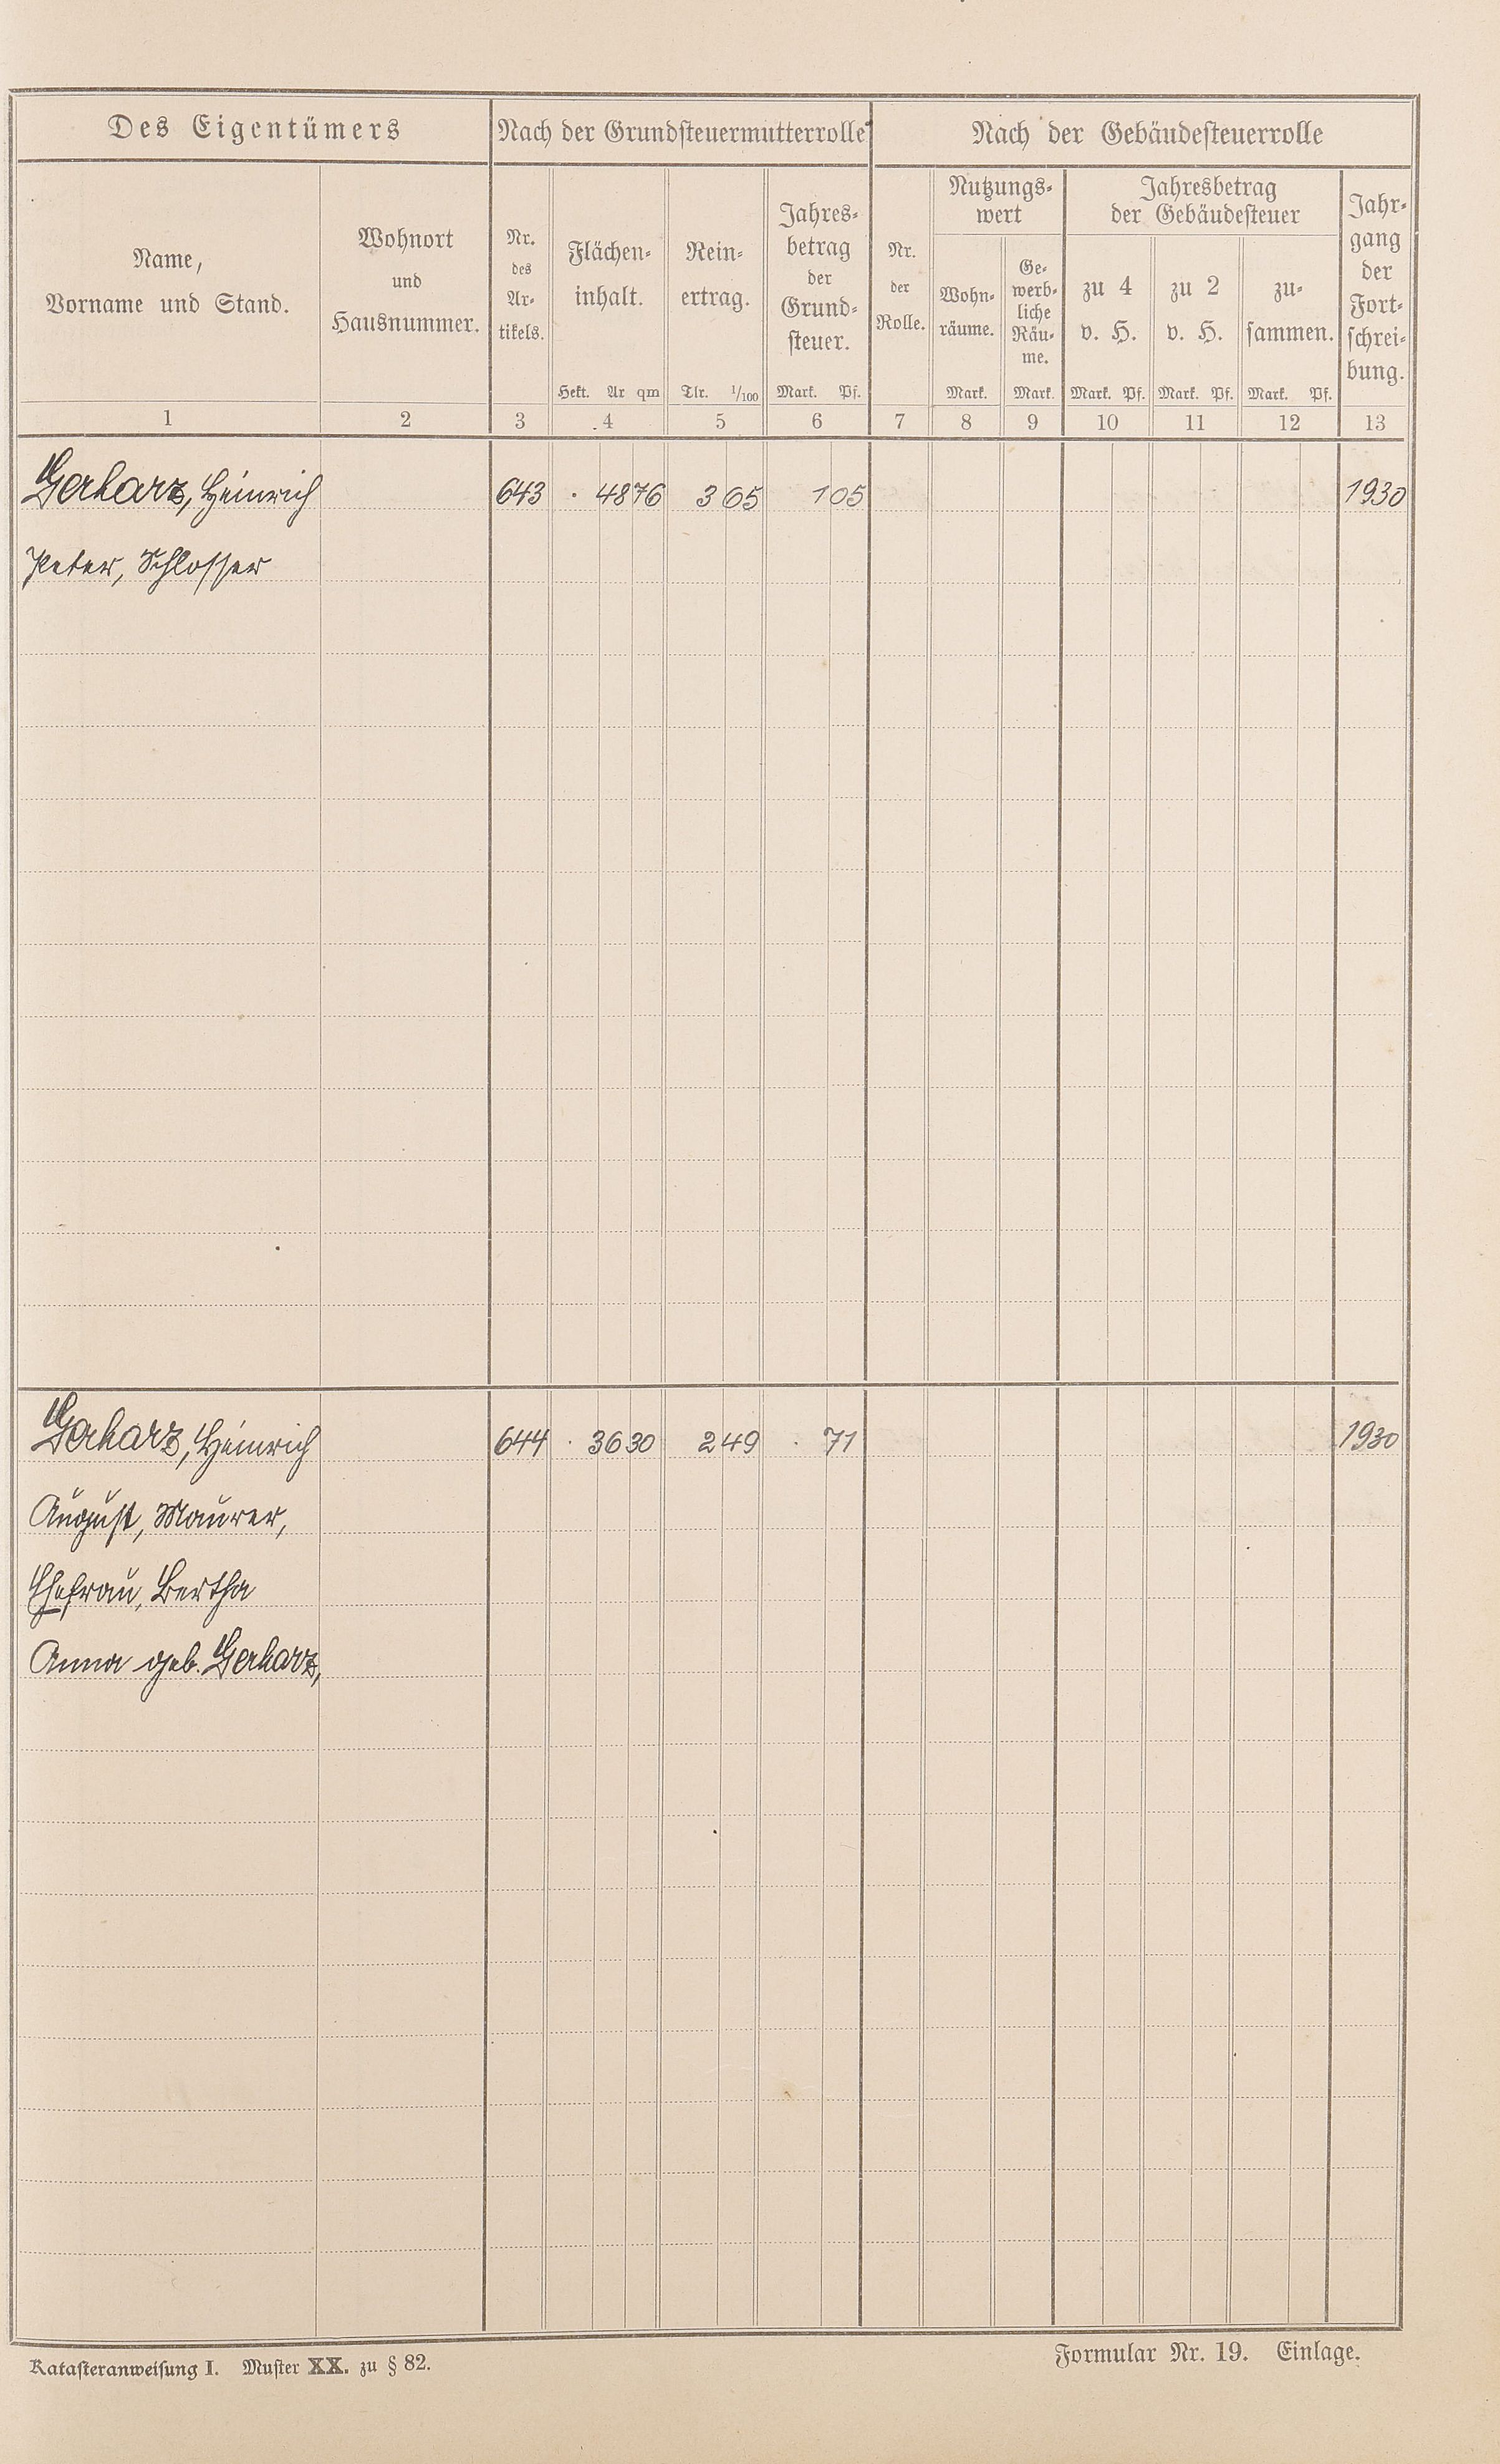 Des Eigentümers
Nach der Grundsteuermutterrolle
Nach der Gebäudesteuerrolle
Name,
Vorname und Stand.
Wohnort
und
Hausnummer.
Nr.
des
Ar-
tikels.
Flächen-
inhalt.
Hekt. Ar qm
Rein-
ertrag.
Tlr. 1/100
Jahres-
betrag
der
Grund-
steuer.
Mark. Pf.
Nr.
der
Rolle.
Nutzungs-
wert
Wohn-
räume.
Mark.
Ge-
werb-
liche
Räu-
me.
Mark.
Jahresbetrag
der Gebäudesteuer
zu 4
v. H.
Mark. Pf.
zu 2
v. H.
Mark. Pf.
zu-
sammen.
Mark. Pf.
Jahr-
gang
der
Fort-
schrei-
bung.
1 2 3 4 5 6 7 8 9 10 11 12 13
Gerharz, Heinrich 643 · 48 76 3 65 1 05 1930
Peter, Schlosser
Gerharz, Heinrich 644 · 36 30 2 49 · 71 1930
August, Maurer,
Ehefrau, Bertha
Anna geb. Gerharz,
Katasteranweisung I. Muster XX. zu § 82.
Formular Nr. 19. Einlage.